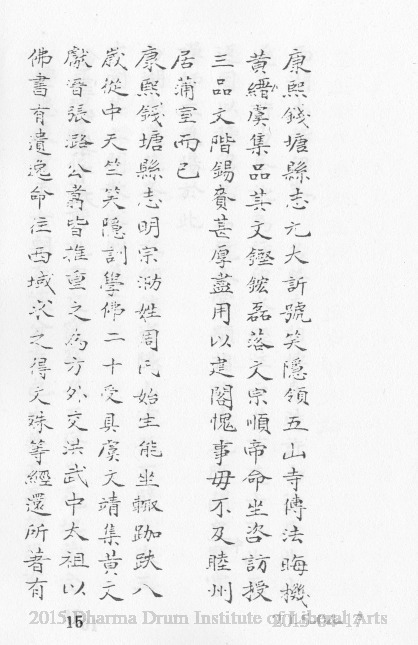 康熙錢塘縣志元大訢號笑隱領五山寺傳法晦機
黃縉虞集品其文鏗鋐磊落文宗順帝命坐咨訪授
三品文階錫賚甚厚盡用以建閣愧事毋不及睦州
居蒲室而已
康熙錢塘縣志明宗泐姓周氏始生能坐輒跏趺八
歲從中天竺笑隱訓學佛二十受具虞文靖集黃文
獻晉張潞公翥皆推重之為方外交洪武中太祖以
佛書有遺逸命往西域求之得文殊等經還所著有
15
2015 Dharma Drum Institute of Liberal Arts
2015-04-17